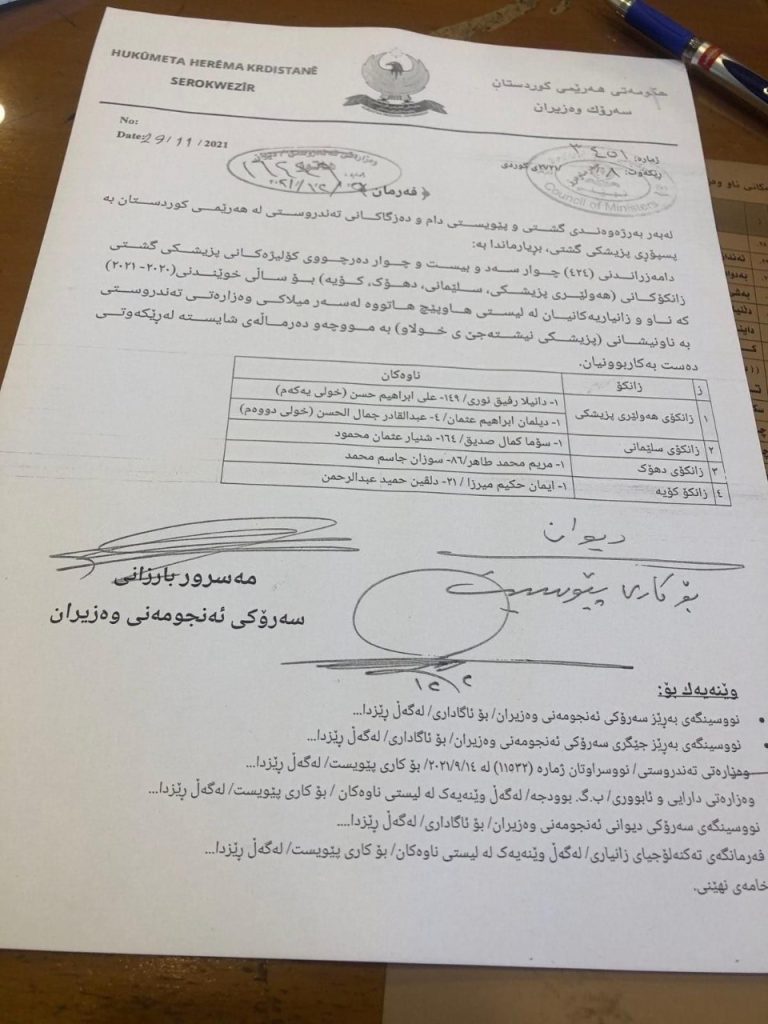 HUKÛMETA HERÊMA KRDISTANÊ
SEROKWEZÎR
حکومەتی هەرێمی کوردستان
سەرۆک وەزیران
No:
Date: 29/11/2021
ژمارە: ٣٤٥١
ڕێکەوت: ٨
ی کوردی
Council of Ministers
وەزارەتی تەندروستی / دیوان
﴿ فەرمان ﴾
لەبەر بەرژەوەندی گشتی و پێویستی دام و دەزگاکانی تەندروستی لە هەرێمی کوردستان بە
پسپۆڕی پزیشکی گشتی، بڕیارماندا بە:
دامەزراندنی (٤٢٤) چوار سەد و بیست و چوار دەرچووی کۆلیژەکانی پزیشکی گشتی
زانکۆکانی (هەولێری پزیشکی، سلێمانی، دهۆک، کۆیە) بۆ ساڵی خوێندنی (٢٠٢٠-٢٠٢١)
کە ناو و زانیاریەکانیان لە لیستی هاوپێچ هاتووە لەسەر میلاکی وەزارەتی تەندروستی
بە ناونیشانی (پزیشکی نیشتەجێ ی خولاو) بە مووچەو دەرماڵەی شایستە لەڕێکەوتی
دەست بەکاربوونیان.
ژ زانکۆ ناوەکان
١ زانکۆی هەولێری پزیشکی ١- دانیلا رفیق نوری/ ١٤٩- علی ابراهیم حسن (خولی یەکەم)
١- دیلمان ابراهیم عثمان/ ٤- عبدالقادر جمال الحسن (خولی دووەم)
٢ زانکۆی سلێمانی ١- سۆما کمال صدیق/ ١٦٤- شنیار عثمان محمود
٣ زانکۆی دهۆک ١- مریم محمد طاهر/ ٨٦- سوزان جاسم محمد
٤ زانکۆ کۆیە ١- ایمان حکیم میرزا / ٢١- دلڤین حمید عبدالرحمن
دیوان
بۆ کاری پێویست
١٢/٢
مەسرور بارزانی
سەرۆکی ئەنجومەنی وەزیران
وێنەیەک بۆ:
• نووسینگەی بەڕێز سەرۆکی ئەنجومەنی وەزیران/ بۆ ئاگاداری/ لەگەڵ ڕێزدا...
• نووسینگەی بەڕێز جێگری سەرۆکی ئەنجومەنی وەزیران/ بۆ ئاگاداری/ لەگەڵ ڕێزدا...
وەزارەتی تەندروستی/ نووسراوتان ژمارە (١١٥٣٢) لە ٢٠٢١/٩/١٤/ بۆ کاری پێویست/ لەگەڵ ڕێزدا...
وەزارەتی دارایی و ئابووری/ ب.گ. بوودجە/ لەگەڵ وێنەیەک لە لیستی ناوەکان / بۆ کاری پێویست/ لەگەڵ ڕێزدا...
نووسینگەی سەرۆکی دیوانی ئەنجومەنی وەزیران/ بۆ ئاگاداری/ لەگەڵ ڕێزدا....
فەرمانگەی تەکنەلۆجیای زانیاری/ لەگەڵ وێنەیەک لە لیستی ناوەکان/ بۆ کاری پێویست/ لەگەڵ ڕێزدا...
خامەی نهێنی.